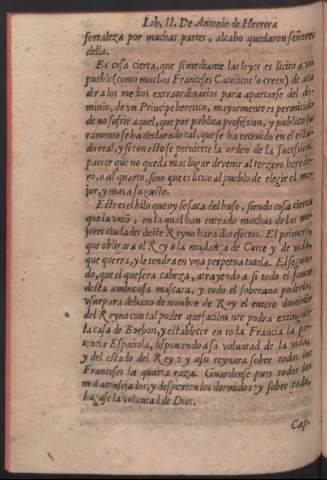 Lib. II. De Antonio de Herrera
fortaleza por muchas partes, alcabo quedaron señores
della.
Es cosa cierta, que si mediante las leyes es licito a vn
pueblo (como muchos Franceses Catolicos lo creen) de acu
dir a los medios extraordinarios para apartarse del do-
minio, de vn Principe heretico, mayormente es permitido
de no sufrir aquel, que por publica profession, y publico ju
ramento se ha declarado tal, que se ha retenido en el esta-
do real, y si con esto se peruierte la orden de la sucession,
parece que no queda mas lugar de venir al tercero herede-
ro, o al quarto, sino que es licito al pueblo de elegir el me-
jor, y mas a su gusto.
Este es el hilo que oy se saca del huso, siendo cosa cierta
que la vniõ, en la qual han entrado muchas de las me-
jores ciudades deste Reyno hara dos efectos. El primero,
que obligara al Rey a la mudança de Corte y de vida,
que querra, y le tendra en vna perpetua tutela. El segun-
do, que el que sera cabeça, atrayendo a si todo el fauor
desta ambiciosa mascara, y todo el soberano poderio,
vsurpara debaxo de nombre de Rey el entero dominio
del Reyno con tal poder que facilmẽte podra extinguir
la casa de Borbon, y establecer en toda Francia la po-
tencia Española, disponiendo a su voluntad de la vida,
y del estado del Rey: y assi reynara sobre todos los
Franceses la quarta raza. Guardense pues todos los
mal aconsejados, y despierten los dormidos: y sobre todo,
hagase la voluntad de Dios.
Cap.